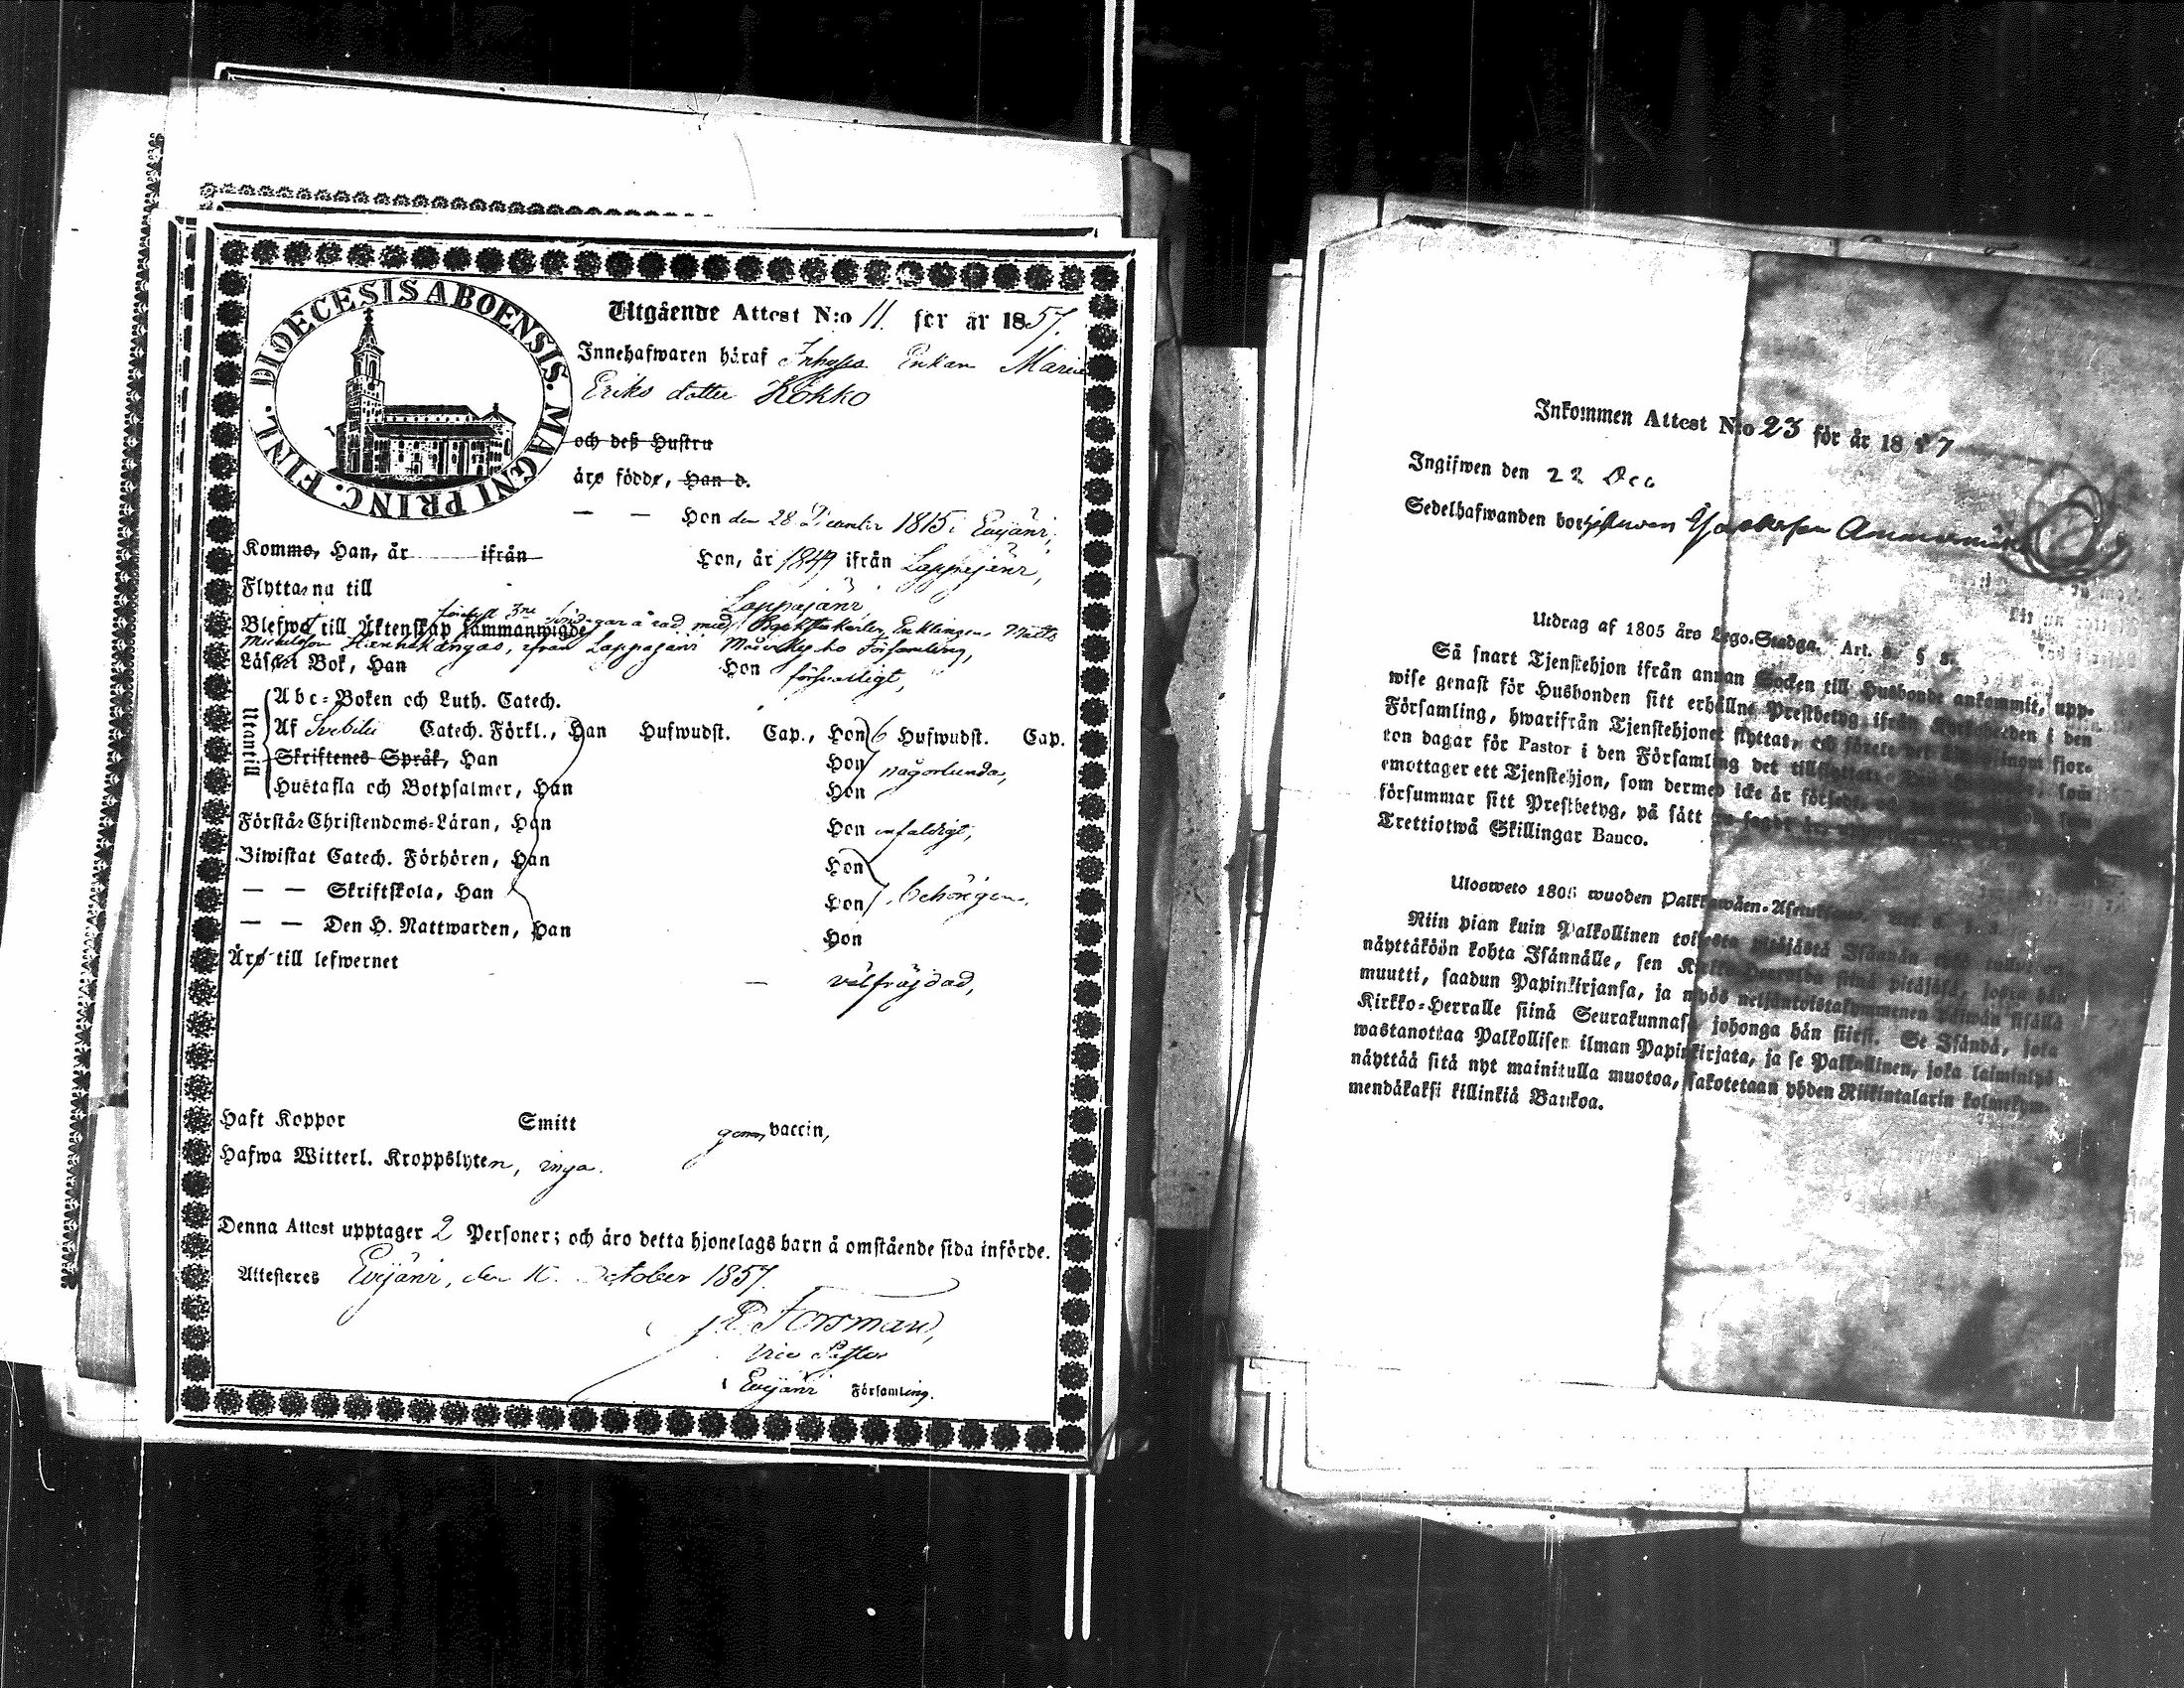 DIOECESIS ABOENSIS. MAGNI PRINC. FINL.
Utgående Attest N:o 11. för år 1857.
Innehafwaren häraf Inhyses Enkan Maria
Eriks dotter Kokko
och deß Hustru
äro födde, Han d.
— — Hon den 28 December 1815 i Evijärvi,
Kommo, Han, år ifrån Hon, år 1849 ifrån Lappajärvi,
Flyttarna till Lappajärvi
Blefwo till Äktenskap sammanwigde 3ne Söndagar å rad med Enklingen Matts
ifrån Lappajärvi Församling,
Läser Bok, Han Hon försvarligt,
Utantill
Abc-Boken och Luth. Catech.
Af Svebilii Catech. Förkl., Han Hufwudst. Cap., Hon 6 Hufwudst. Cap.
Skriftenes Språk, Han Hon någorlunda,
Hustafla och Botpsalmer, Han Hon
Förstår Christendoms-Läran, Han Hon enfaldigt,
Biwistat Catech. Förhören, Han Hon
— — Skriftskola, Han Hon behörigen.
— — Den H. Nattwarden, Han Hon
Äro till lefwernet
— välfräjdad,
Haft Koppor Smitt genom vaccin,
Hafwa Witterl. Kroppslyten, inga.
Denna Attest upptager 2 Personer; och äro detta hjonelags barn å omstående sida införde.
Attesteras Evijärvi, den 10 October 1857.
Forsman,
Vice Pastor
i Evijärvi Församling.
Inkommen Attest N:o 23 för år 1857
Ingifwen den 22 Dec
Sedelhafwanden bor
Utdrag af 1805 års Lego-Stadga. Art. §
Så snart Tjenstehjon ifrån annan Socken till Husbonde ankommit, upp-
wise genast för Husbonden sitt erhållne Prestbetyg ifrån Kyrkoherden i den
Församling, hwarifrån Tjenstehjonet flyttat, och förete det inom fjor-
ton dagar för Pastor i den Församling det tillflyttat. som
emottager ett Tjenstehjon, som dermed icke är försedt, som
försummar sitt Prestbetyg, på sätt
Trettiotwå Skillingar Banco.
Ulosweto 1805 wuoden Palkkawäen-Asetuksesta.
Niin pian kuin Palkollinen toisesta pitäjästä Isännän
näyttäköön kohta Isännälle, sen Kirkko-Herralda siinä pitäjäsä, josta hän
muutti, saadun Papinkirjansa, ja myös neljäntoistakymmenen päiwän sisällä
Kirkko-Herralle siinä Seurakunnasa johonga hän siirsi. Se Isändä, joka
wastanottaa Palkollisen ilman Papinkirjata, ja se Palkollinen, joka laiminlyö
näyttää sitä nyt mainitulla muotoa, sakotetaan yhden Riikintalarin kolmekym-
mendäkaksi killinkiä Bankoa.